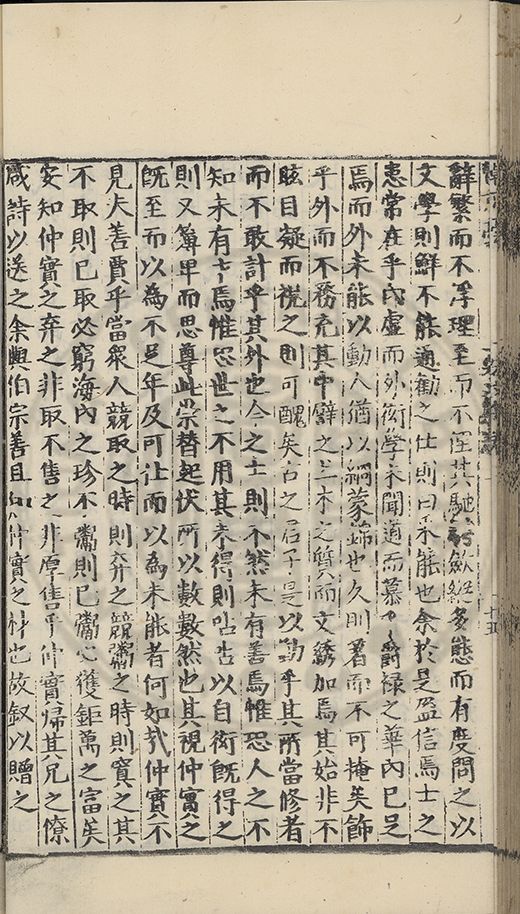 辭繁而不浮理至而不淫其馳騁斂縱多態而有度問之以
文學則鮮不能通勸之仕則曰未能也余於是益信焉士之
患常在乎內虛而外衒學未聞道而慕夫爵祿之華內已足
焉而外未能以動人猶以綱蒙錦也久則著而不可掩矣飾
乎外而不務充其中譬之土木之質而文綉加焉其始非不
眩目疑而視之則可醜矣古之君子是以勤乎其所當修者
而不敢計乎其外也今之士則不然未有善焉惟恐人之不
知未有士焉惟恐世之不用其未得則呫呫以自衒旣得之
則又筭卑而思尊此崇替起伏所以數數然也其視仲實之
旣至而以為不足年及可仕而以為未能者何如哉仲實不
見夫善賈乎當衆人競取之時則弃之競鬻之時則寶之其
不取則已取必窮海內之珍不鬻則已鬻必獲鉅萬之富矣
安知仲實之弃之非取不售之非厚售乎仲實歸其兄之僚
咸詩以送之余與伯宗善且知仲實之材也故敍以贈之
十五